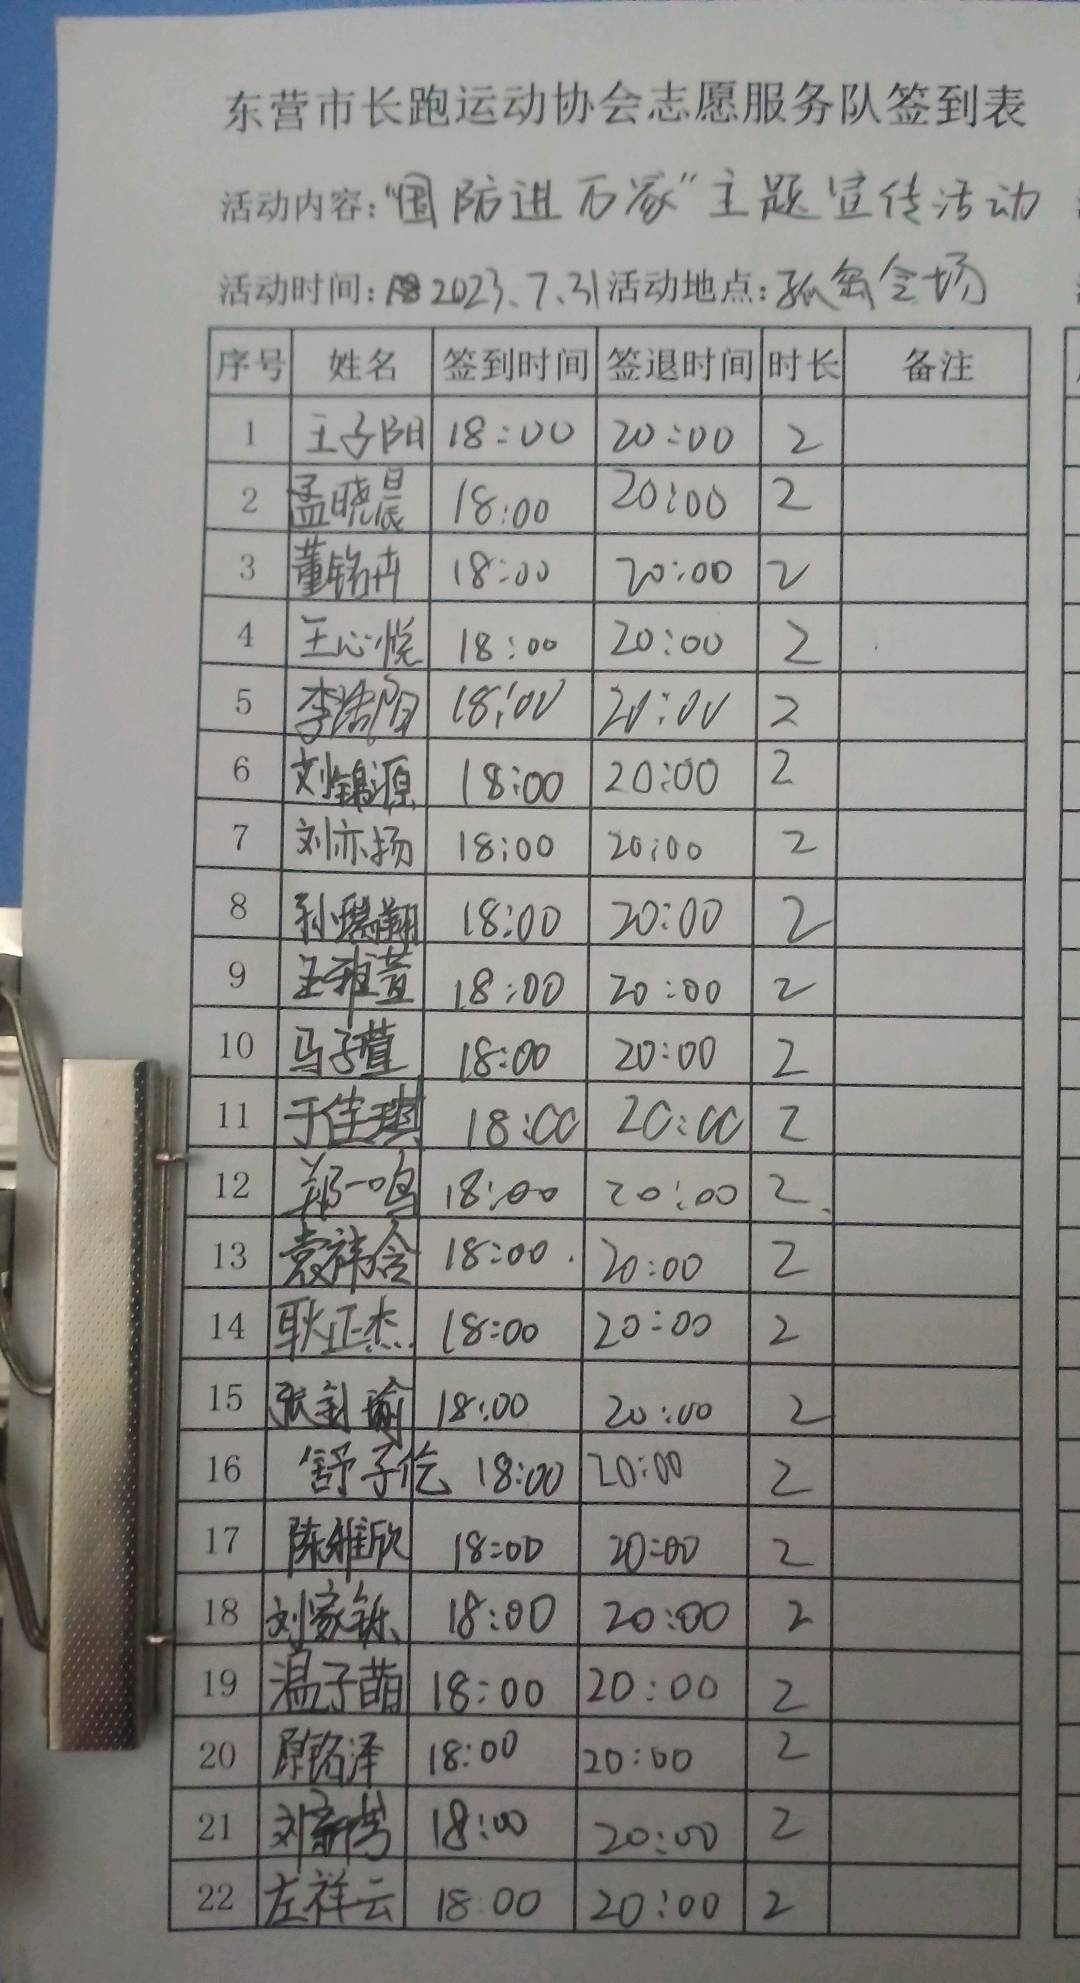 东营市长跑运动协会志愿服务队签到表
活动内容："国防进万家"主题宣传活动
活动时间：2023.7.31 活动地点：孤岛会场
序号 姓名 签到时间 签退时间 时长 备注
1 王子阳 18:00 20:00 2
2 孟晓晨 18:00 20:00 2
3 董铭卉 18:00 20:00 2
4 王心悦 18:00 20:00 2
5 李浩阳 18:00 20:00 2
6 刘锦源 18:00 20:00 2
7 刘亦扬 18:00 20:00 2
8 孙瑞翔 18:00 20:00 2
9 王雅萱 18:00 20:00 2
10 马子萱 18:00 20:00 2
11 于佳琪 18:00 20:00 2
12 郑一鸣 18:00 20:00 2
13 袁祎含 18:00 20:00 2
14 耿正杰 18:00 20:00 2
15 张钊瑜 18:00 20:00 2
16 舒子仡 18:00 20:00 2
17 陈雅欣 18:00 20:00 2
18 刘家铄 18:00 20:00 2
19 温子萌 18:00 20:00 2
20 原铭泽 18:00 20:00 2
21 刘 18:00 20:00 2
22 左祥云 18:00 20:00 2